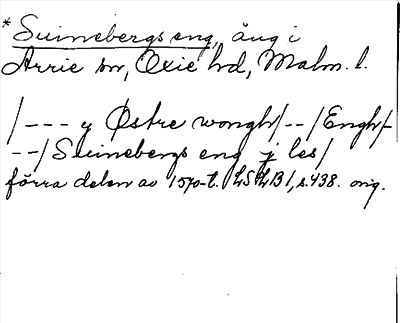 *Suinebergs eng, äng i
Arrie sn, Oxie hd, Malm. l.
/--- y Østre wongh/--/Engh/-
--/Suinebergs eng j les/
förra delen av 1570-t. LSLB1, s. 438. orig.